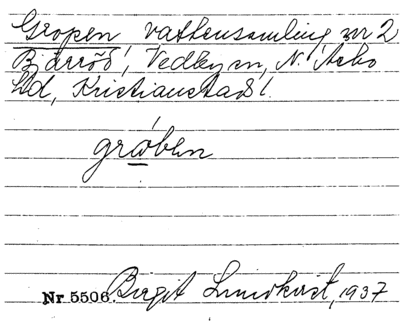 Gropen vattensamling, nr 2
Bjärröd, Vedby sn, N. Åsbo
hd, Kristianstads l.
gròben
Nr 5506. Birgit Lundkvist, 1937